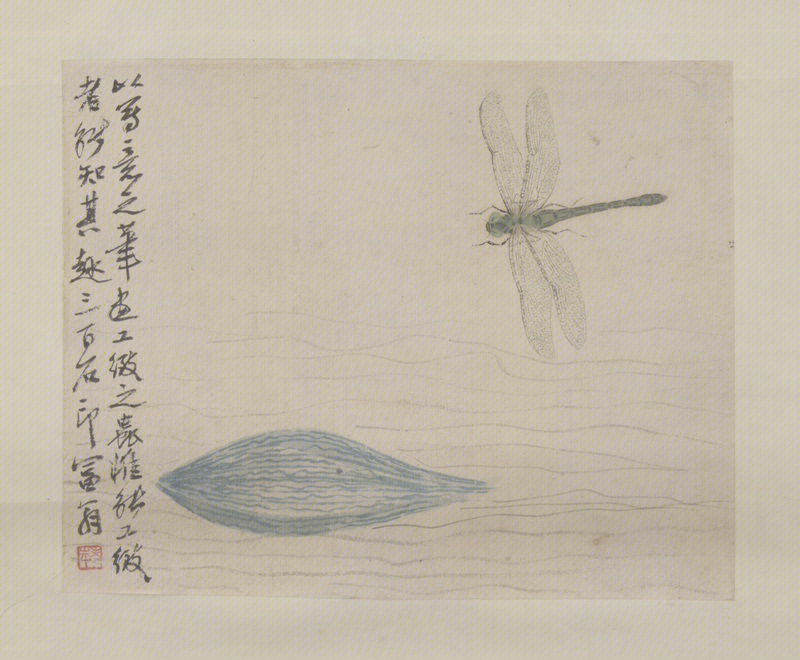 以写意之筆画工緻之虫惟能工緻
者能知其趣三百石印富翁